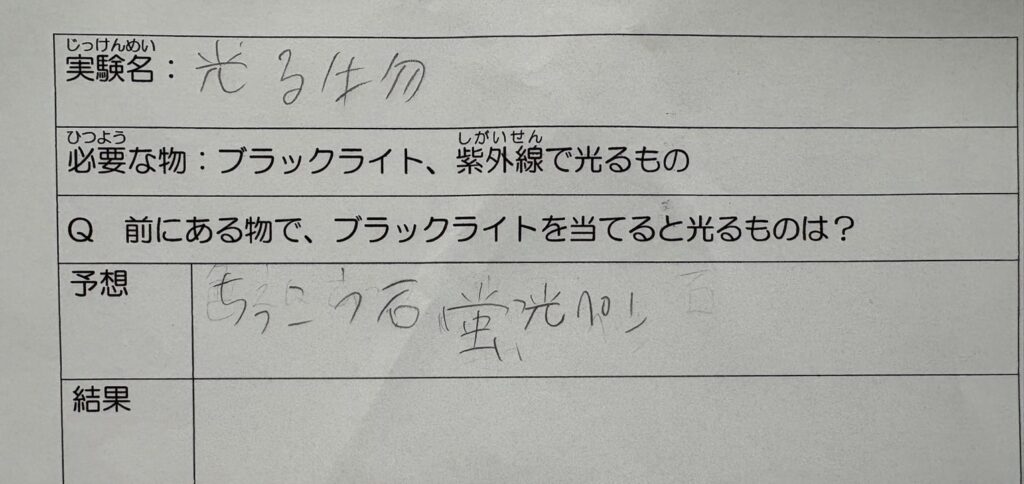 じっけんめい
実験名：光る物
ひつよう しがいせん
必要な物：ブラックライト、紫外線で光るもの
Q 前にある物で、ブラックライトを当てると光るものは？
予想 ちっこう石 蛍光ペン
結果